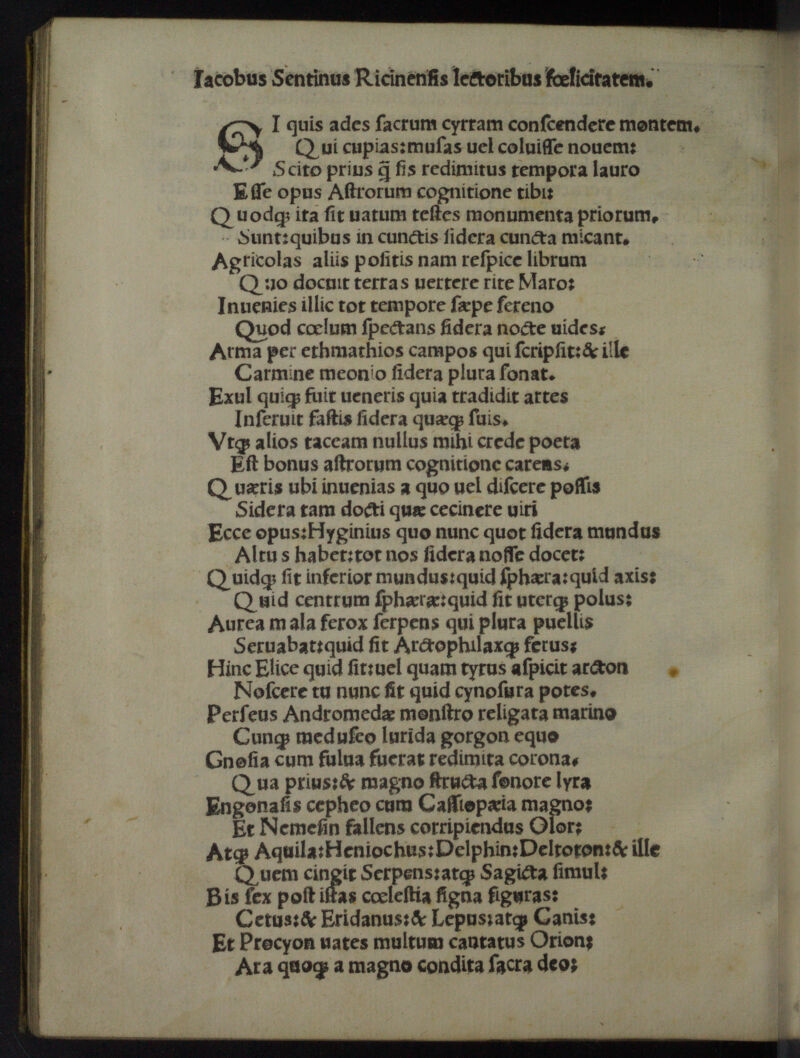 Iacobus Sentinus Ricinenſis lectoribus fœlicitatem.
SI quis ades ſacrum cyrram conſcendere montem.
Qui cupias:muſas uel coluiſſe nouem:
Scito prius q̃ ſis redimitus tempora lauro
Eſſe opus Aſtrorum cognitione tibi:
Quodqꝫ ita ſit uatum teſtes monumenta priorum,
Sunt:quibus in cunctis ſidera cuncta micant.
Agricolas aliis poſitis nam reſpice librum
Quo docuit terras uertere rite Maro:
Inuenies illic tot tempore ſæpe ſereno
Quod cœlum ſpectans ſidera nocte uides:
Arma per ethmathios campos qui ſcripſit:& ille
Carmine meonio ſidera plura ſonat.
Exul quiqꝫ fuit ueneris quia tradidit artes
Inſeruit faſtis ſidera quæqꝫ ſuis.
Vtqꝫ alios taceam nullus mihi crede poeta
Eſt bonus aſtrorum cognitione carens.
Quæris ubi inuenias a quo uel diſcere poſſis
Sidera tam docti quæ cecinere uiri
Ecce opus:Hyginius quo nunc quot ſidera mundus
Altus habet:tot nos ſidera noſſe docet:
Quidqꝫ ſit inferior mundus:quid ſphæra:quid axis:
Quid centrum ſphæræ:quid ſit uterqꝫ polus:
Aurea mala ferox ſerpens qui plura puellis
Seruabat:quid ſit Arctophilaxqꝫ ferus:
Hinc Elice quid ſit:uel quam tyrus aſpicit arcton
Noſcere tu nunc ſit quid cynoſura potes.
Perſeus Andromedæ monſtro religata marino
Cunqꝫ meduſeo lurida gorgon equo
Gnoſia cum fulua fuerat redimita corona.
Qua prius:& magno ſtructa ſonore lyra
Engonaſis cepheo cum Caſſiopæia magno:
Et Nemeſin fallens corripiendus Olor:
Atqꝫ Aquila:Heniochus:Delphin:Deltoton:& ille
Quem cingit Serpens:atqꝫ Sagicta ſimul:
Bis ſex poſt iſtas cœleſtia ſigna figuras:
Cetus:& Eridanus:& Lepus:atqꝫ Canis:
Et Procyon uates multum cantatus Orion:
Ara quoqꝫ a magno condita ſacra deo: